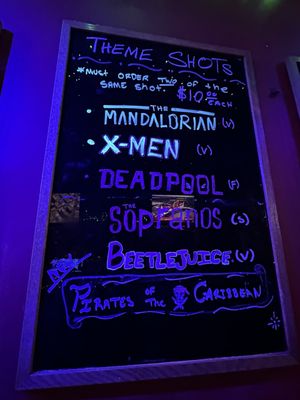 THEME SHOTS
*MUST ORDER TWO OF the
SAME SHOT. $10.00 EACH
• THE MANDALORIAN (V)
• X-MEN (V)
DEADPOOL (F)
THE SOPRANOS (S)
BEETLEJUICE (V)
PIRATES OF THE CARIBBEAN